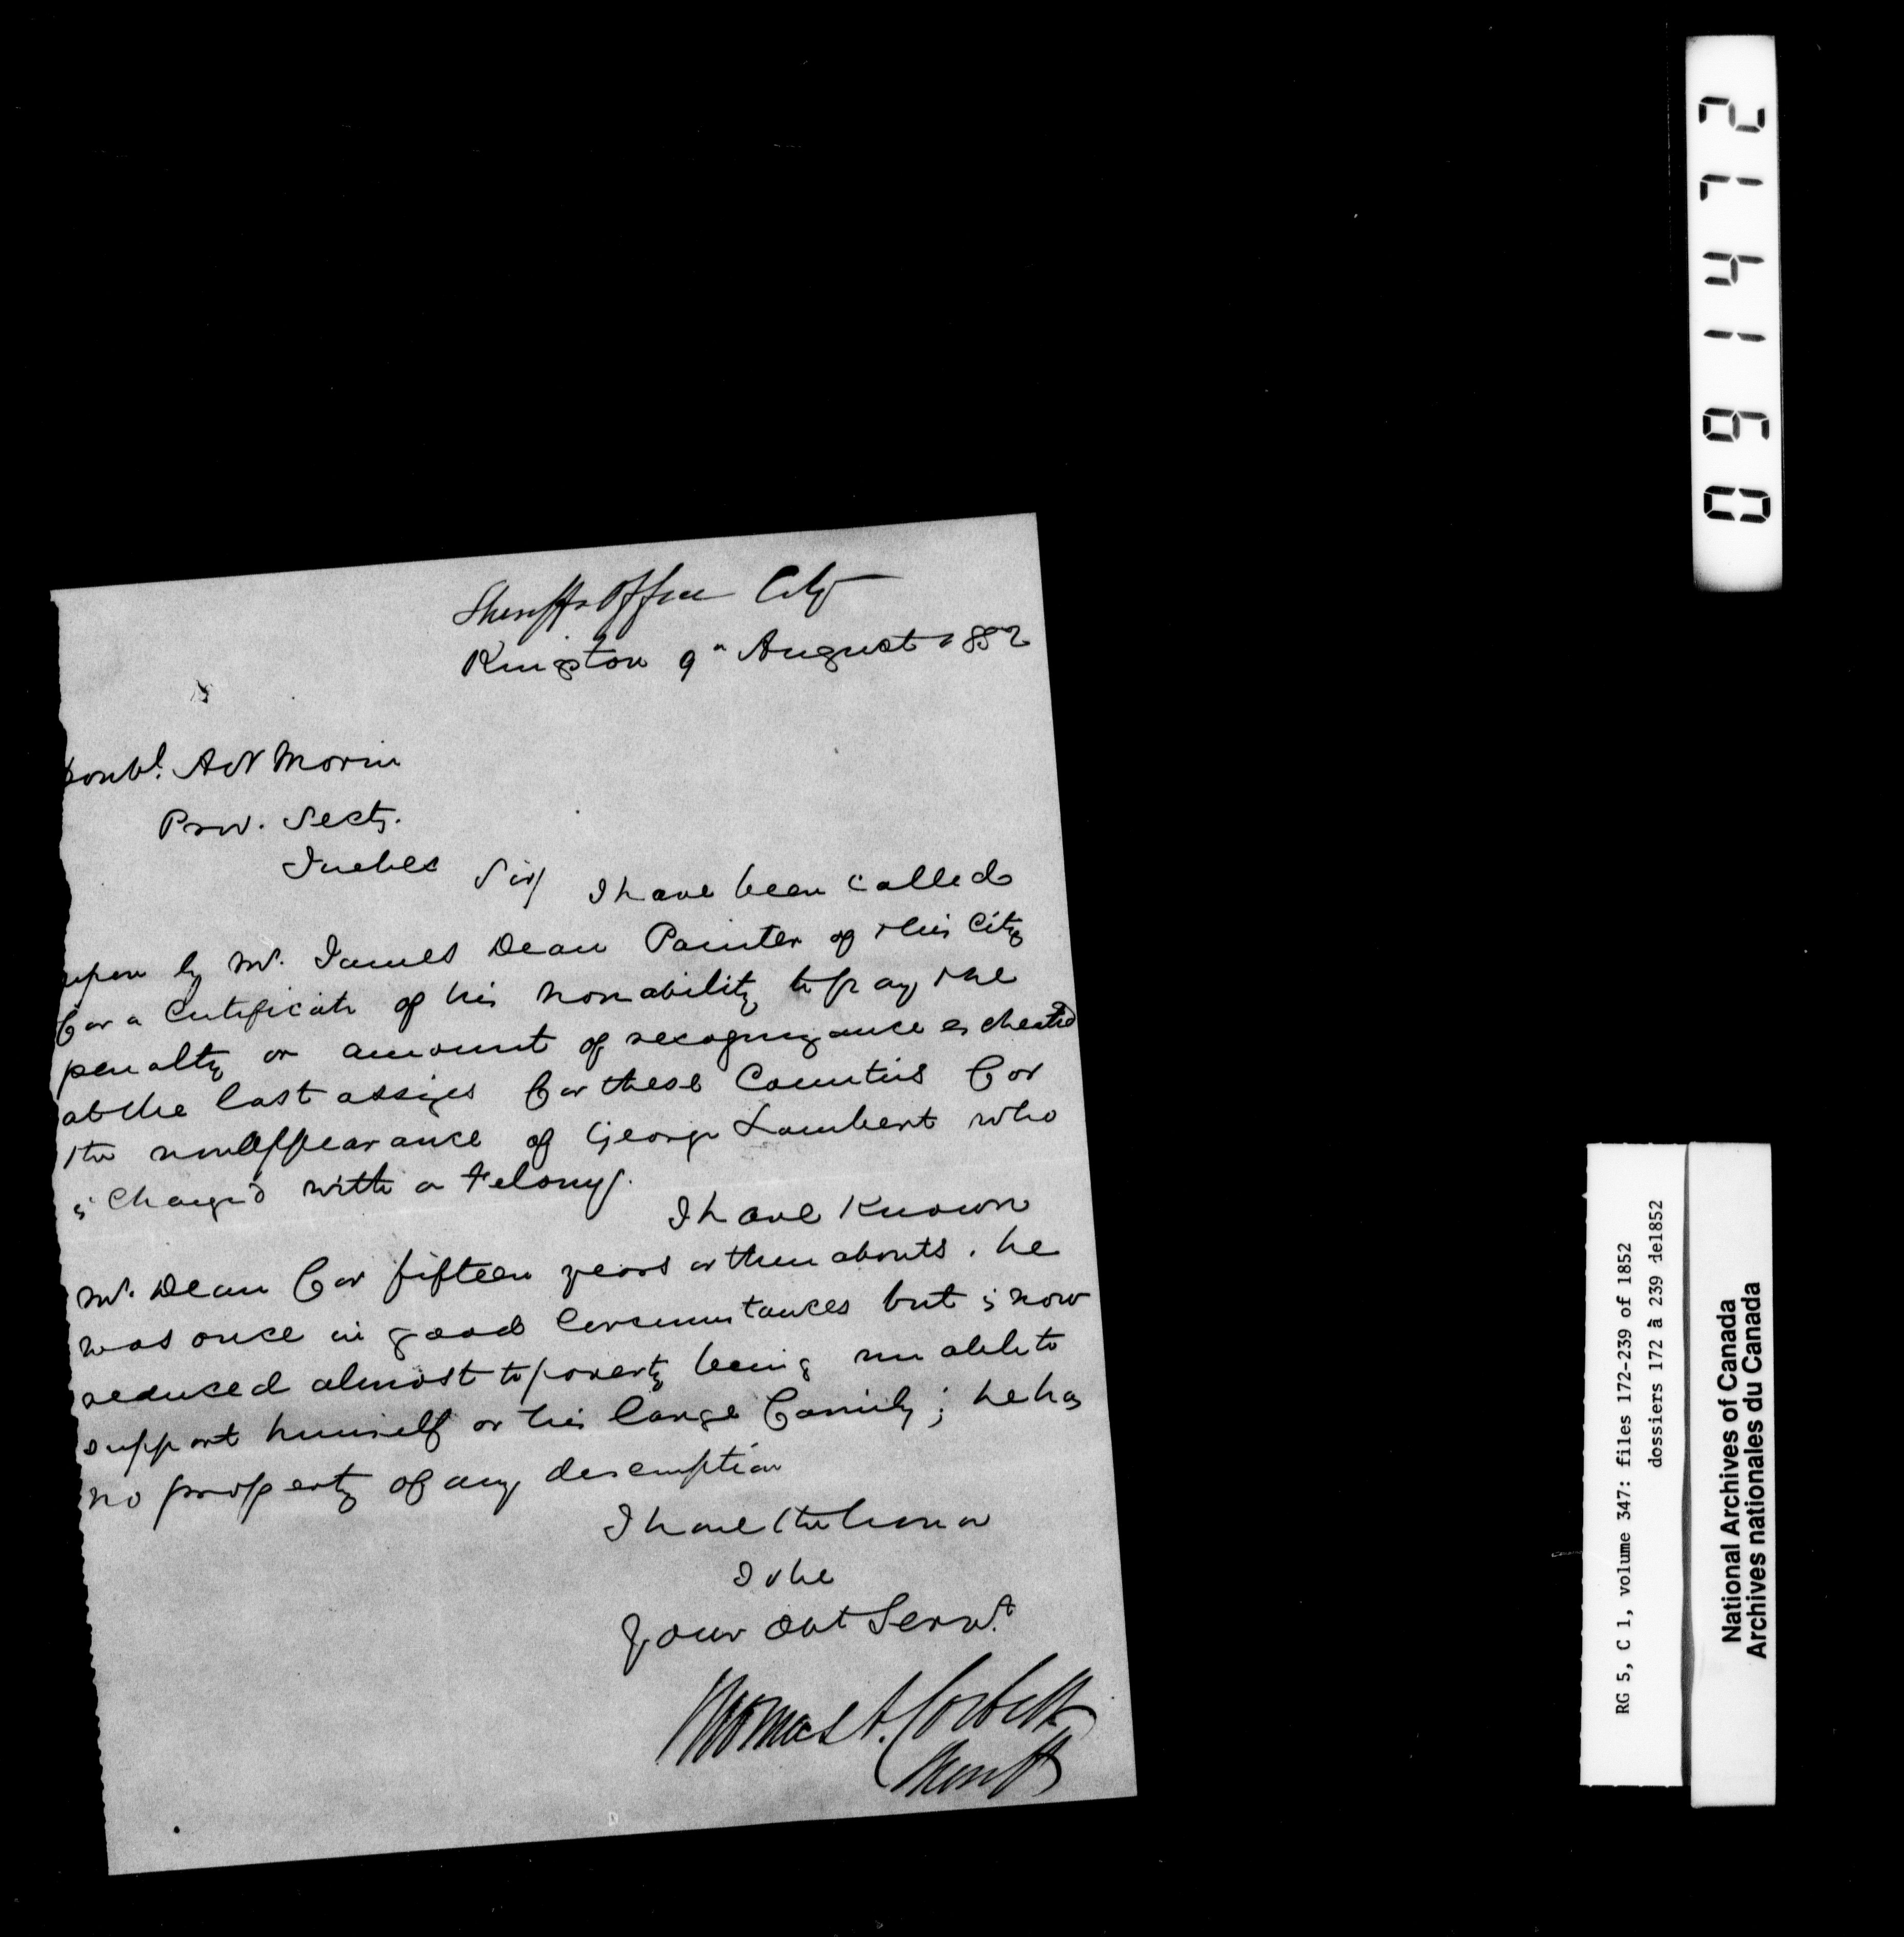 Sheriffs Office City
Kingston 9th August 1852
Honbl. A N Morin
Prov. Secty.
Quebec Sir/ I have been called
upon by Mr. James Dean Painter of this City
for a Certificate of his nonability to pay the
penalty or amount of recognizance escheated
at the last assizes for these Counties for
the nonappearance of George Lambert who
is Charged with a Felony.
I have Known
Mr. Dean for fifteen years or thereabouts. he
was once in good Circumstances but is now
reduced almost to poverty being unable to
support himself or his large family; he has
no property of any description
I have the honor
To be
Your Obt Servt.
Thomas A. Corbett
Sheriff
061472
RG 5, C 1, volume 347: files 172-239 of 1852
dossiers 172 à 239 de1852
National Archives of Canada
Archives nationales du Canada